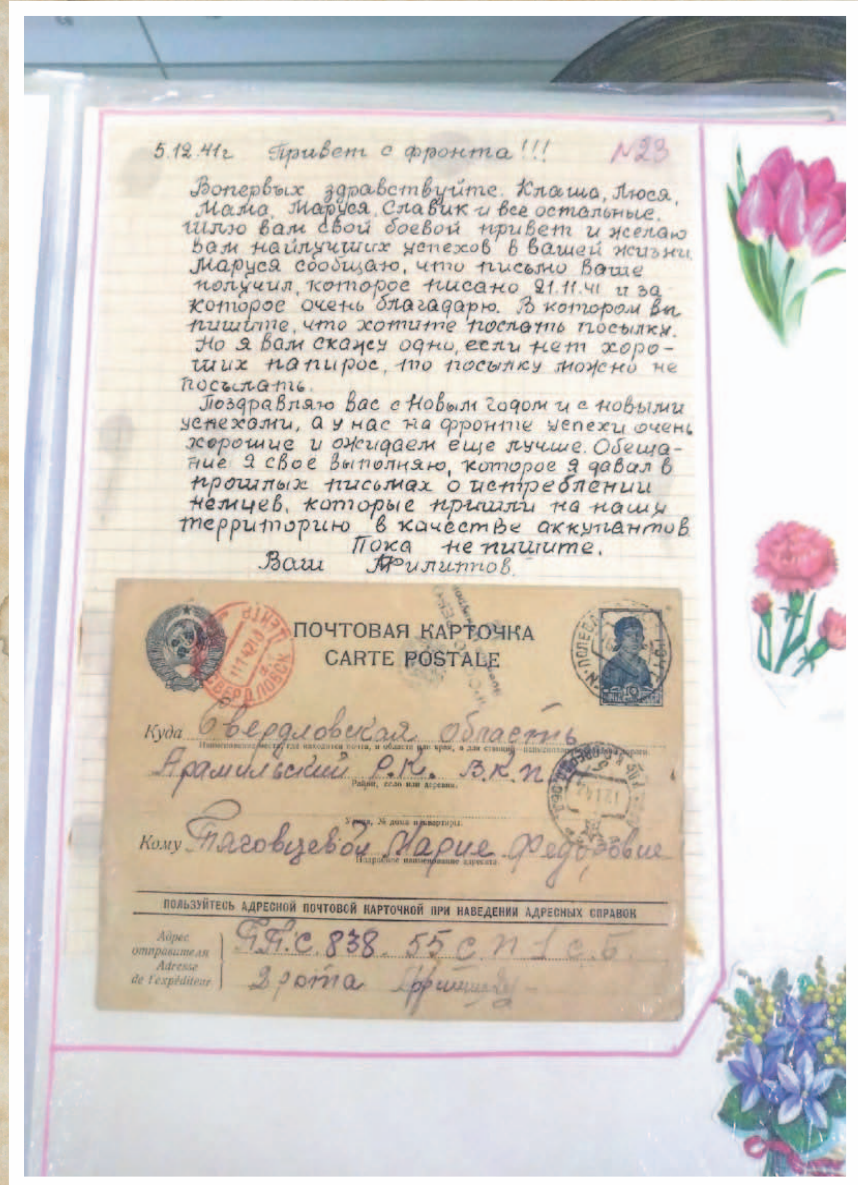 5.12.41г Привет с фронта!!! №23
Вопервых здравствуйте. Клаша, Люся,
Мама, Маруся, Славик и все остальные.
Шлю вам свой боевой привет и желаю
вам наилучших успехов в вашей жизни.
Маруся сообщаю, что письмо Ваше
получил, которое писано 21.11.41 и за
которое очень благадарю. В котором вы
пишите, что хотите послать посылку.
Но я вам скажу одно, если нет хоро-
ших папирос, то посылку можно не
посылать.
Поздравляю вас с Новым годом и с новыми
успехами, а у нас на фронте успехи очень
хорошие и ожидаем еще лучше. Обеща-
ние я своё выполняю, которое я давал в
прошлых письмах о истреблении
немцев, которые пришли на нашу
территорию в качестве аккупантов
Пока не пишите.
Ваш Филиппов.
ПОЧТОВАЯ КАРТОЧКА
CARTE POSTALE
СВЕРДЛОВСК
10
Куда Свердловская область
Арамильский Р.К. В.К.П
Район, село или деревня.
Улица, № дома и квартиры.
Кому Тяговцевой Марие Федоровне
Подробное наименование адресата
ПОЛЬЗУЙТЕСЬ АДРЕСНОЙ ПОЧТОВОЙ КАРТОЧКОЙ ПРИ НАВЕДЕНИИ АДРЕСНЫХ СПРАВОК
Адрес отправителя
Adresse de l'expéditeur
П.П.С. 838. 55 с.п 1 с.Б.
2 рота